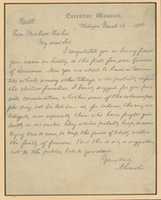 Private
Executive Mansion,
Washington, March 13, 1864.
Hon. Michael Hahn
My dear Sir:
I congratulate you on having fixed
your name in history as the first free-state Governor
of Louisiana. Now you are about to have a Conven-
tion which, among other things, will probably define
the elective franchise. I barely suggest for your pri-
vate consideration, whether some of the colored peo-
ple may not be let in—as, for instance, the very in-
telligent, and especially those who have fought gal-
lantly in our ranks. They would probably help, in some
trying time to come, to keep the jewel of liberty within
the family of freedom. But this is only a suggestion,
not to the public, but to you alone.
Yours truly
A. Lincoln